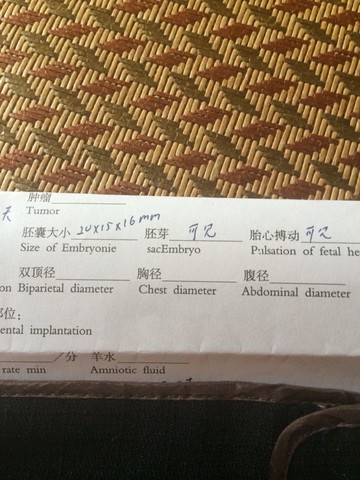 肿瘤
天 Tumor
胚囊大小 20X15X16mm 胚芽 可见 胎心搏动 可见
Size of Embryonie sacEmbryo Pulsation of fetal he
双顶径 胸径 腹径
on Biparietal diameter Chest diameter Abdominal diameter
部位：
ental implantation
/分 羊水
rate min Amniotic fluid